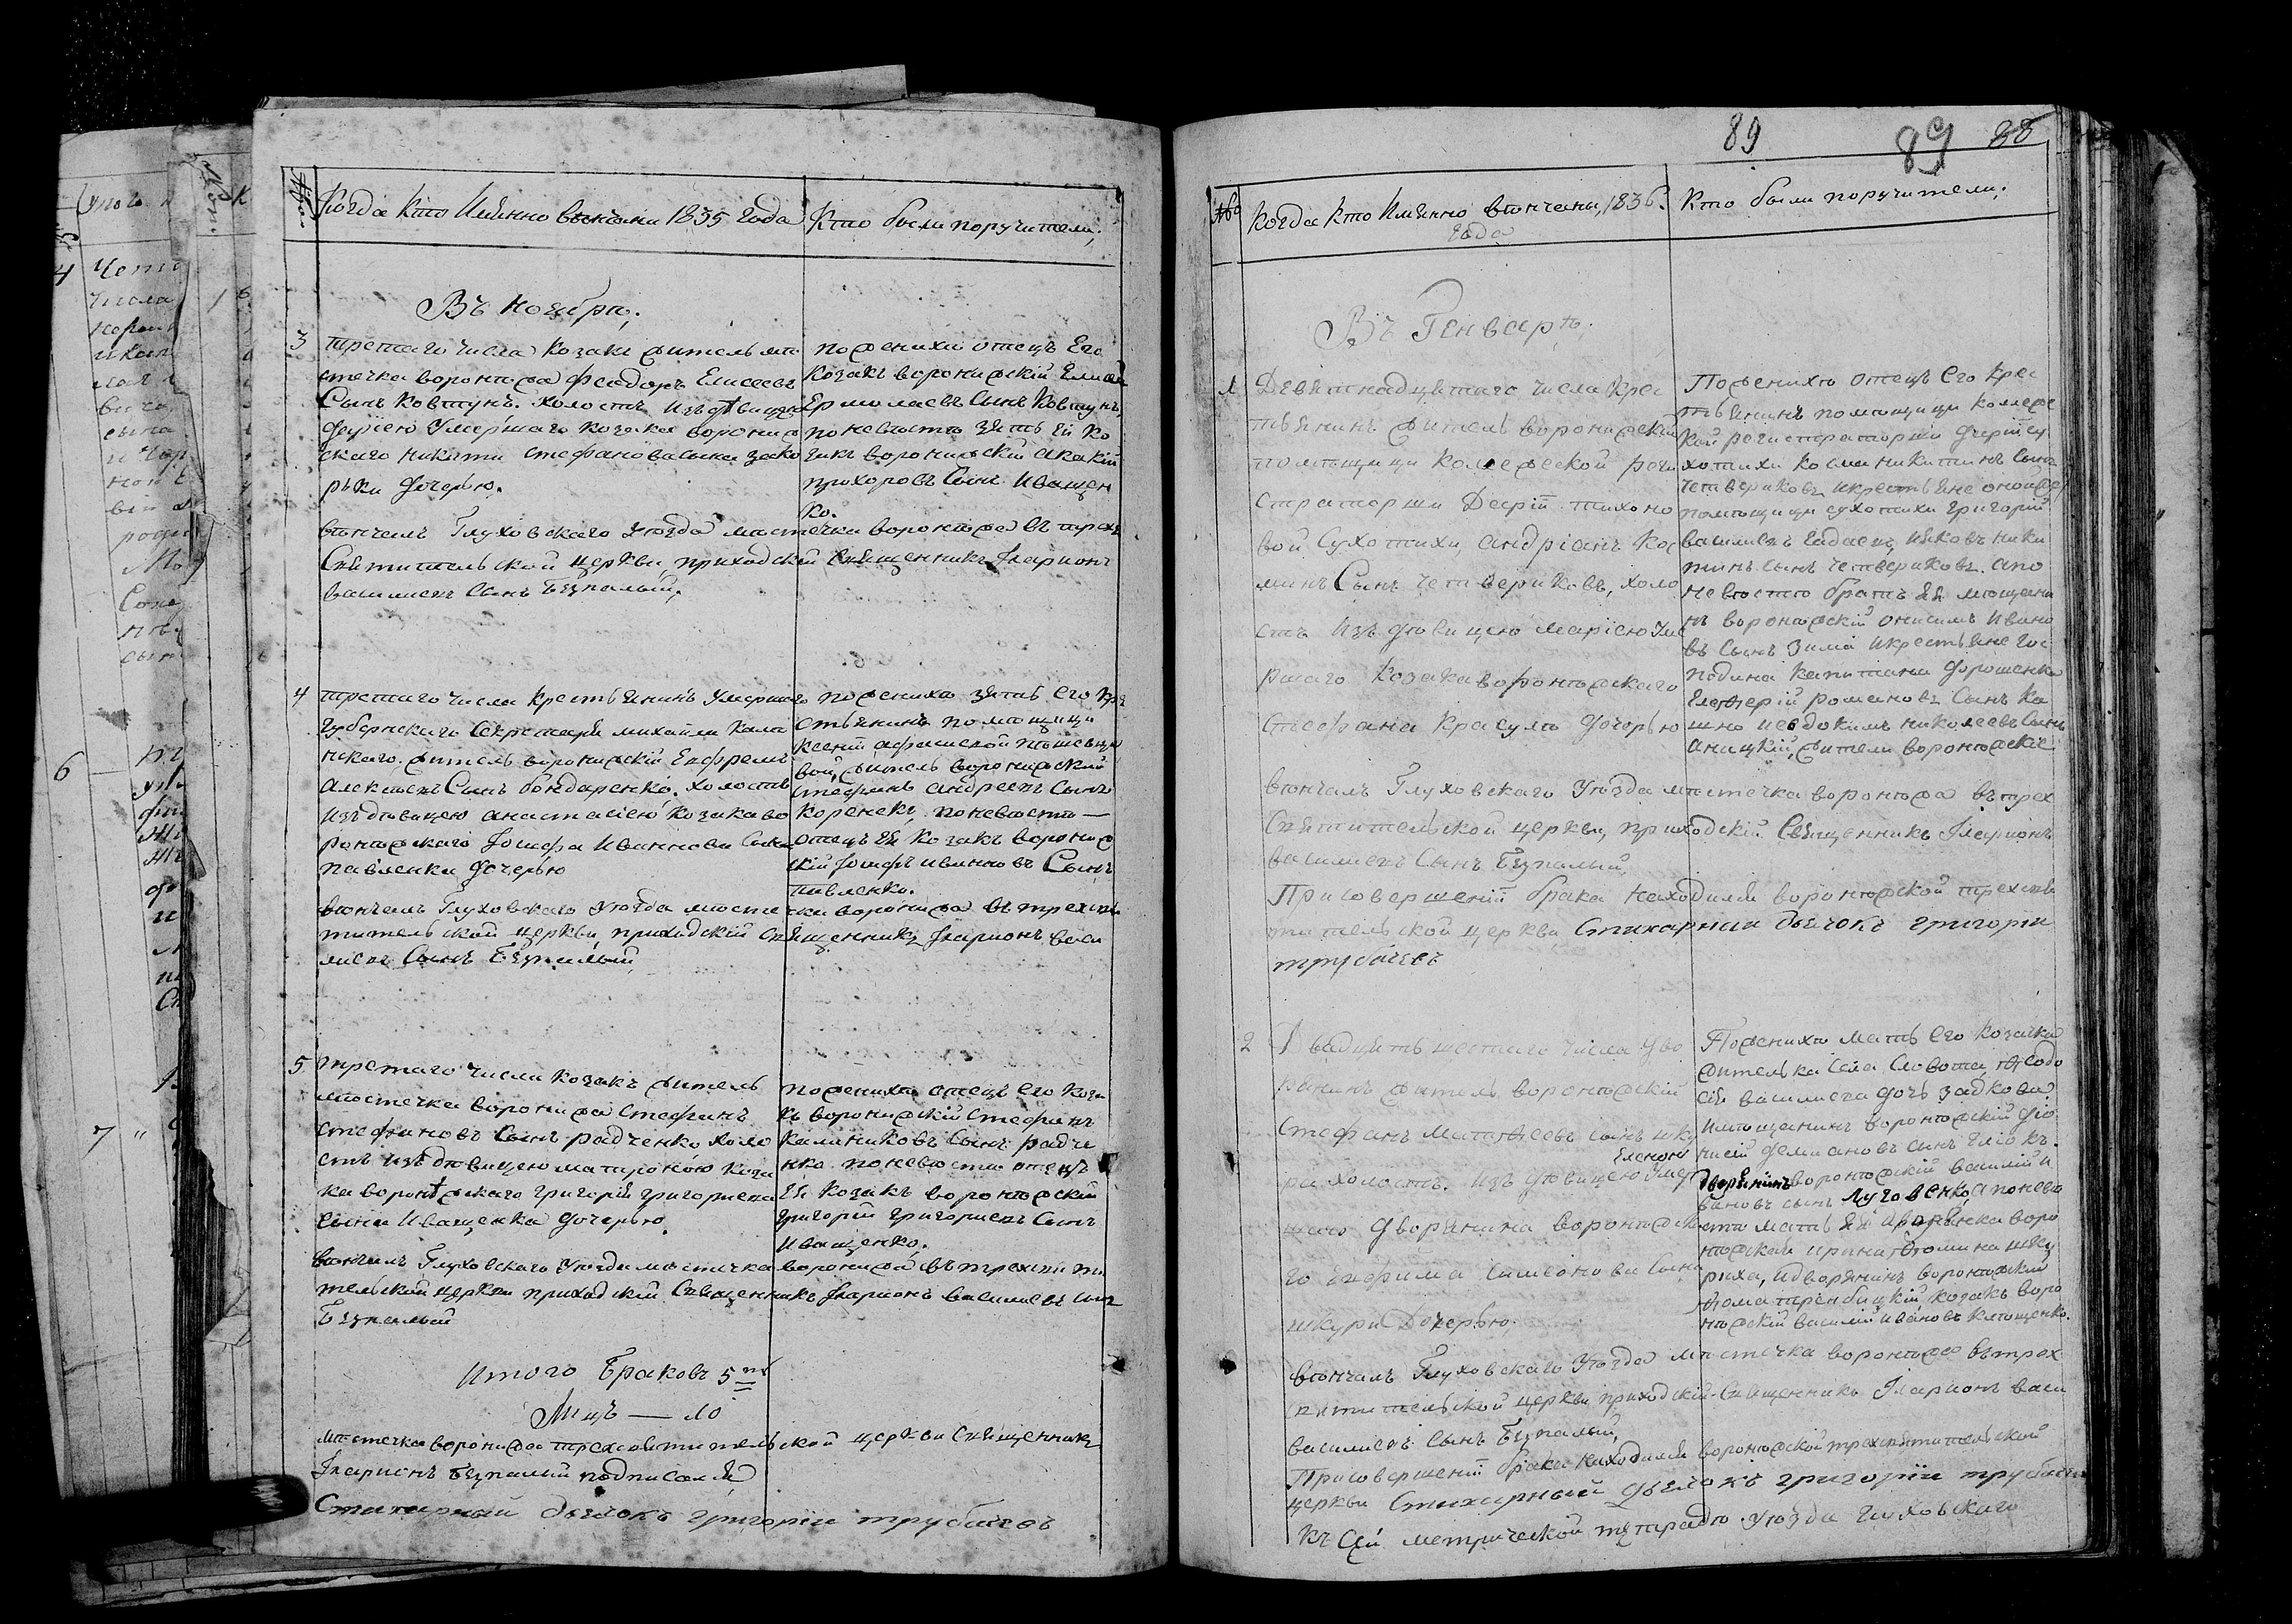 Когда Кто Именно венчаны 1835 года
Кто были поручители;
Въ ноябрѣ;
3
третаго числа Козакъ житель мѣ
стечка воронѣжа Феодоръ Елисеевъ
Сынъ Ковтунъ. холостъ изъ дѣвицею
умершаго козака воронѣж
скаго никити стефанова сына
дочерью.
по женихѣ отецъ Его
Козакъ воронѣжскій Елисей
Ермолаевъ Сынъ Ковтунъ,
по невѣстѣ зять Ея Ко
закъ воронѣжскій акакій
прохоровъ Сынъ Иващен
ко.
вѣнчалъ Глуховскаго уѣзда мѣстечка воронѣжа въ трехъ
Святительской церкви, приходскій Священникъ Іларіонъ
василіевъ Сынъ Безпалый,
4
третаго числа Крестьянинъ умершаго
Губернскаго Секретаря михайла
житель воронѣжскій Евфремъ
алексѣевъ Сынъ бондаренко. холостъ
изъ дѣвицею анастасіею козака во
ронѣжскаго Іосифа Иваннова Сына
павленка дочерью
по женихѣ зять Его Кре
стьянинъ помѣщицы
житель воронѣжскій
стефанъ андреевъ Сынъ
Коренекъ, по невѣстѣ —
отецъ Ея Козакъ воронѣж
скій Іосифъ ивановъ Сынъ
павленко.
вѣнчалъ Глуховскаго уѣзда мѣстечка воронѣжа въ трехсвя
тительской церкви, приходскій священникъ Іларіонъ васи
ліевъ Сынъ Безпалый,
5
третаго числа козакъ житель
мѣстечка воронѣжа Стефанъ
Стефановъ Сынъ радченко холо
стъ изъ дѣвицею матроною коза
ка воронѣжскаго григорія григоріева
сына Иващенка дочерью.
по женихѣ отецъ его коза
къ воронѣжскій Стефанъ
Калиниковъ Сынъ радче
нко. по невѣстѣ отецъ
Ея козакъ воронѣжскій
григорій григоріевъ Сынъ
Иващенко.
вѣнчалъ Глуховскаго уѣзда мѣстечка воронѣжа въ трехсвяти
тельской церкви приходскій Священникъ Іларіонъ василіевъ сынъ
Безпалый
Итого Браковъ 5ть
Лицъ — 10
мѣстечка воронѣжа трехсвятительской церкви священникъ
Іларіонъ Безпалый подписался
Стихарный дьячокъ григорій трубачевъ
89
89 88
№
Когда кто Именно вѣнчаны, 1836.
года
Кто были поручители;
Въ Генварѣ,
1
Девятнадцатаго числа Крес
тьянинъ житель воронѣжскій
помѣщицы Колежской реги
страторши Дарiи тихоно
вой Сухотихи, андріанъ Кос
минъ Сынъ четвериковъ, холо
стъ изъ дѣвицею маріею уме
ршаго Козака воронѣжскаго
Стефана Красули дочерью
По женихѣ отецъ Его Крес
тьянинъ помѣщицы Коллежс
кой регистраторши дарiи су
хотихи Косма никитинъ Сынъ
Четвериковъ, и крестьяне оной же
помѣщицы сухотихи григорій
василіевъ, Іаковъ ники
тинъ сынъ четвериковъ. а по
невѣстѣ братъ Ея мѣщани
нъ воронѣжскій онисимъ Ивано
въ Сынъ Зима и крестьяне гос
подина капитана дорошенка
Елевферій романовъ Сынъ Ка
шно и евдокимъ николаевъ Сынъ
жители воронѣжскіе
вѣнчалъ Глуховскаго уѣзда мѣстечка воронѣжа въ трех
Святительской церкви, приходскій Священникъ Іларіонъ
василіевъ Сынъ Безпалый,
При совершеніи брака находился воронѣжской трехсвя
тительской церкви Стихарный дьячокъ григорій
трубачевъ
2
Двадцять шестаго числа дво
рянинъ житель воронѣжскій
Стефанъ Матѳеевъ сынъ шку
ра холостъ. изъ дѣвицею Еленою умер
шаго дворянина воронѣжска
го Евфима Симеонова Сына
шкури Дочерью.
По женихѣ мать его козачка
жителька села Словота ѳеодо
сія василиева дочь задкова.
и мѣщанинъ воронѣжскій діо
нисій даміановъ сынъ
дворянинъ воронѣжскій василій и
вановъ сынъ Луговенко, а по невѣ
стѣ мать Ея дворянка воро
нѣжская ирина ѳомина шку
риха, и дворянинъ воронѣжскій
ѳома трембицкій, козакъ воро
нѣжскій василій ивановъ клющенко.
вѣнчалъ Глуховскаго уѣзда мѣстечка воронѣжа въ трех
святительской церкви приходскій Священникъ Іларіонъ васи
василіевъ сынъ Безпалый,
При совершеніи брака находился воронѣжской трехсвятительской
церкви Стихарный дьячокъ григорій трубачевъ
Къ сей метрической тетрадѣ уѣзда Глуховскаго